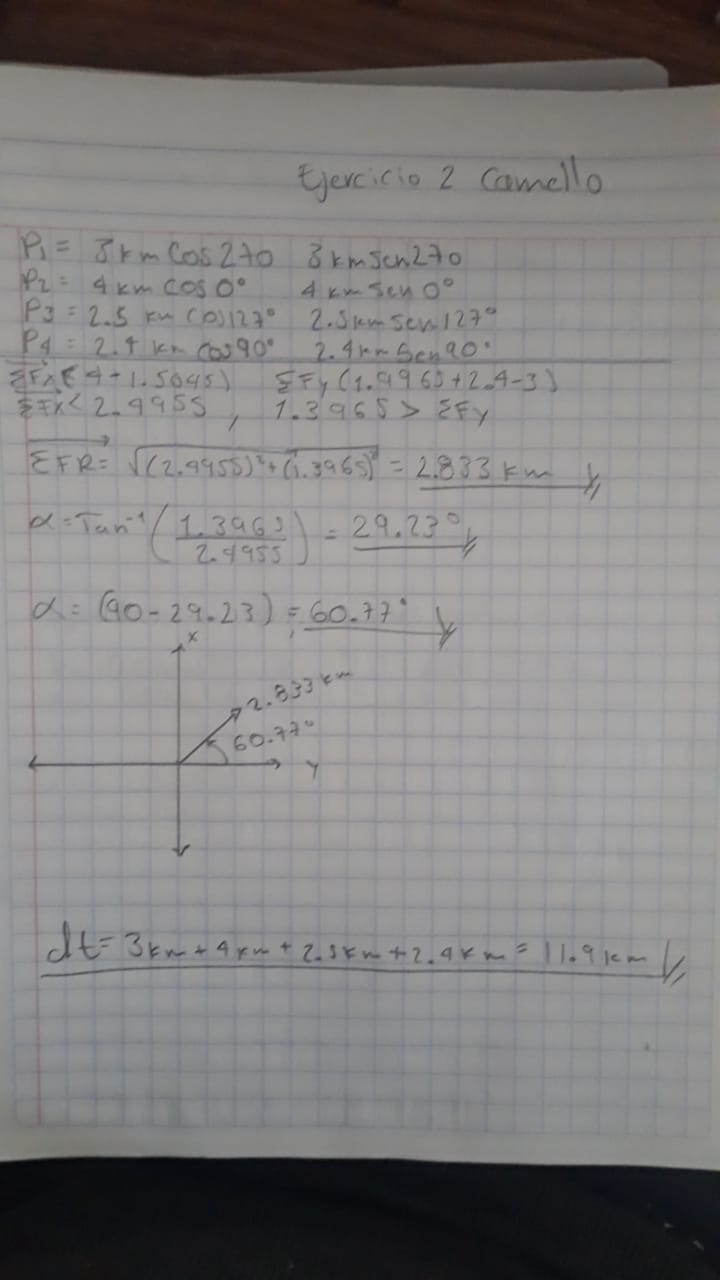 Ejercicio 2 Camello
P1 = 3 km Cos 270 3 km sen 270
P2 = 4 km cos 0° 4 km sen 0°
P3 = 2.5 km Cos 127° 2.5 km sen 127°
P4 = 2.4 km cos 90° 2.4 km sen 90°
ΣFx(4-1.5045) ΣFy(1.9965+2.4-3)
ΣFx< 2.4955, 1.3965> ΣFy
ΣFR = √(2.4955)²+(1.3965)² = 2.833 km
α = Tan⁻¹ (1.3965/2.4955) = 29.23°
α = (90-29.23) = 60.77°
x
2.833 km
60.77°
y
dt = 3 km + 4 km + 2.5 km + 2.4 km = 11.9 km